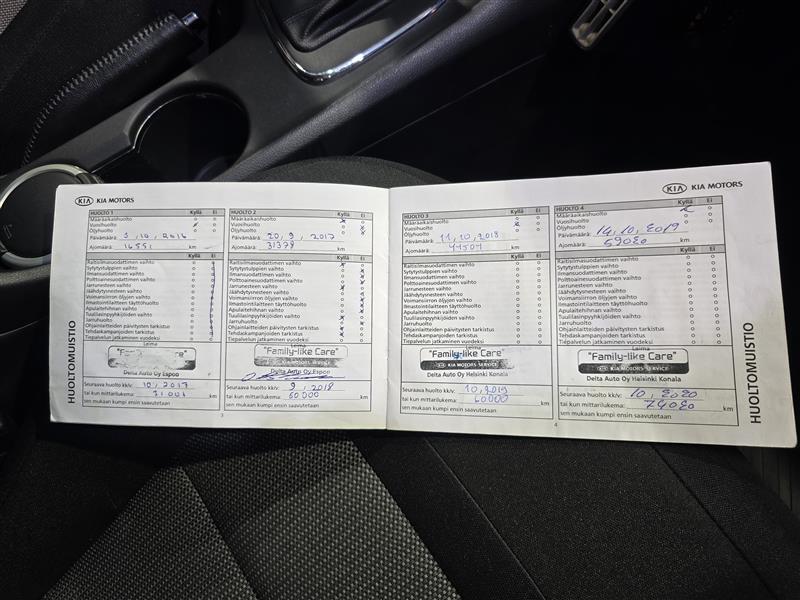 KIA KIA MOTORS
HUOLTO 1 Kyllä Ei
Määräaikaishuolto
Vuosihuolto
Öljyhuolto
Päivämäärä: 3, 10, 2016
Ajomäärä: 16551 km
Kyllä Ei
Raitisilmasuodattimen vaihto
Sytytystulppien vaihto
Ilmansuodattimen vaihto
Polttoainesuodattimen vaihto
Jarrunesteen vaihto
Jäähdytysnesteen vaihto
Voimansiirron öljyjen vaihto
Ilmastointilaitteen täyttöhuolto
Apulaitehihnan vaihto
Tuulilasinpyyhkijöiden vaihto
Jarruhuolto
Ohjainlaitteiden päivitysten tarkistus
Tehdaskampanjoiden tarkistus
Tiepalvelun jatkaminen vuodeksi
Leima
"Family-like Care"
Delta Auto Oy Espoo
Seuraava huolto kk/v: 10, 2017
tai kun mittarilukema: 31001 km
sen mukaan kumpi ensin saavutetaan
3
HUOLTO 2 Kyllä Ei
Määräaikaishuolto
Vuosihuolto
Öljyhuolto
Päivämäärä: 20, 9, 2017
Ajomäärä: 31379 km
Kyllä Ei
Raitisilmasuodattimen vaihto
Sytytystulppien vaihto
Ilmansuodattimen vaihto
Polttoainesuodattimen vaihto
Jarrunesteen vaihto
Jäähdytysnesteen vaihto
Voimansiirron öljyjen vaihto
Ilmastointilaitteen täyttöhuolto
Apulaitehihnan vaihto
Tuulilasinpyyhkijöiden vaihto
Jarruhuolto
Ohjainlaitteiden päivitysten tarkistus
Tehdaskampanjoiden tarkistus
Tiepalvelun jatkaminen vuodeksi
Leima
"Family-like Care"
KIA MOTORS SERVICE
Delta Auto Oy Espoo
Seuraava huolto kk/v: 9, 2018
tai kun mittarilukema: 60000 km
sen mukaan kumpi ensin saavutetaan
HUOLTOMUISTIO
HUOLTO 3 Kyllä Ei
Määräaikaishuolto
Vuosihuolto
Öljyhuolto
Päivämäärä: 11, 10, 2018
Ajomäärä: 44504 km
Kyllä Ei
Raitisilmasuodattimen vaihto
Sytytystulppien vaihto
Ilmansuodattimen vaihto
Polttoainesuodattimen vaihto
Jarrunesteen vaihto
Jäähdytysnesteen vaihto
Voimansiirron öljyjen vaihto
Ilmastointilaitteen täyttöhuolto
Apulaitehihnan vaihto
Tuulilasinpyyhkijöiden vaihto
Jarruhuolto
Ohjainlaitteiden päivitysten tarkistus
Tehdaskampanjoiden tarkistus
Tiepalvelun jatkaminen vuodeksi
Leima
"Family-like Care"
KIA MOTORS SERVICE
Delta Auto Oy Helsinki Konala
Seuraava huolto kk/v: 10, 2019
tai kun mittarilukema: 60000 km
sen mukaan kumpi ensin saavutetaan
KIA KIA MOTORS
HUOLTO 4 Kyllä Ei
Määräaikaishuolto
Vuosihuolto
Öljyhuolto
Päivämäärä: 14, 10, 2019
Ajomäärä: 59020 km
Kyllä Ei
Raitisilmasuodattimen vaihto
Sytytystulppien vaihto
Ilmansuodattimen vaihto
Polttoainesuodattimen vaihto
Jarrunesteen vaihto
Jäähdytysnesteen vaihto
Voimansiirron öljyjen vaihto
Ilmastointilaitteen täyttöhuolto
Apulaitehihnan vaihto
Tuulilasinpyyhkijöiden vaihto
Jarruhuolto
Ohjainlaitteiden päivitysten tarkistus
Tehdaskampanjoiden tarkistus
Tiepalvelun jatkaminen vuodeksi
Leima
"Family-like Care"
KIA MOTORS SERVICE
Delta Auto Oy Helsinki Konala
Seuraava huolto kk/v: 10, 2020
tai kun mittarilukema: 74020 km
sen mukaan kumpi ensin saavutetaan
4
HUOLTOMUISTIO